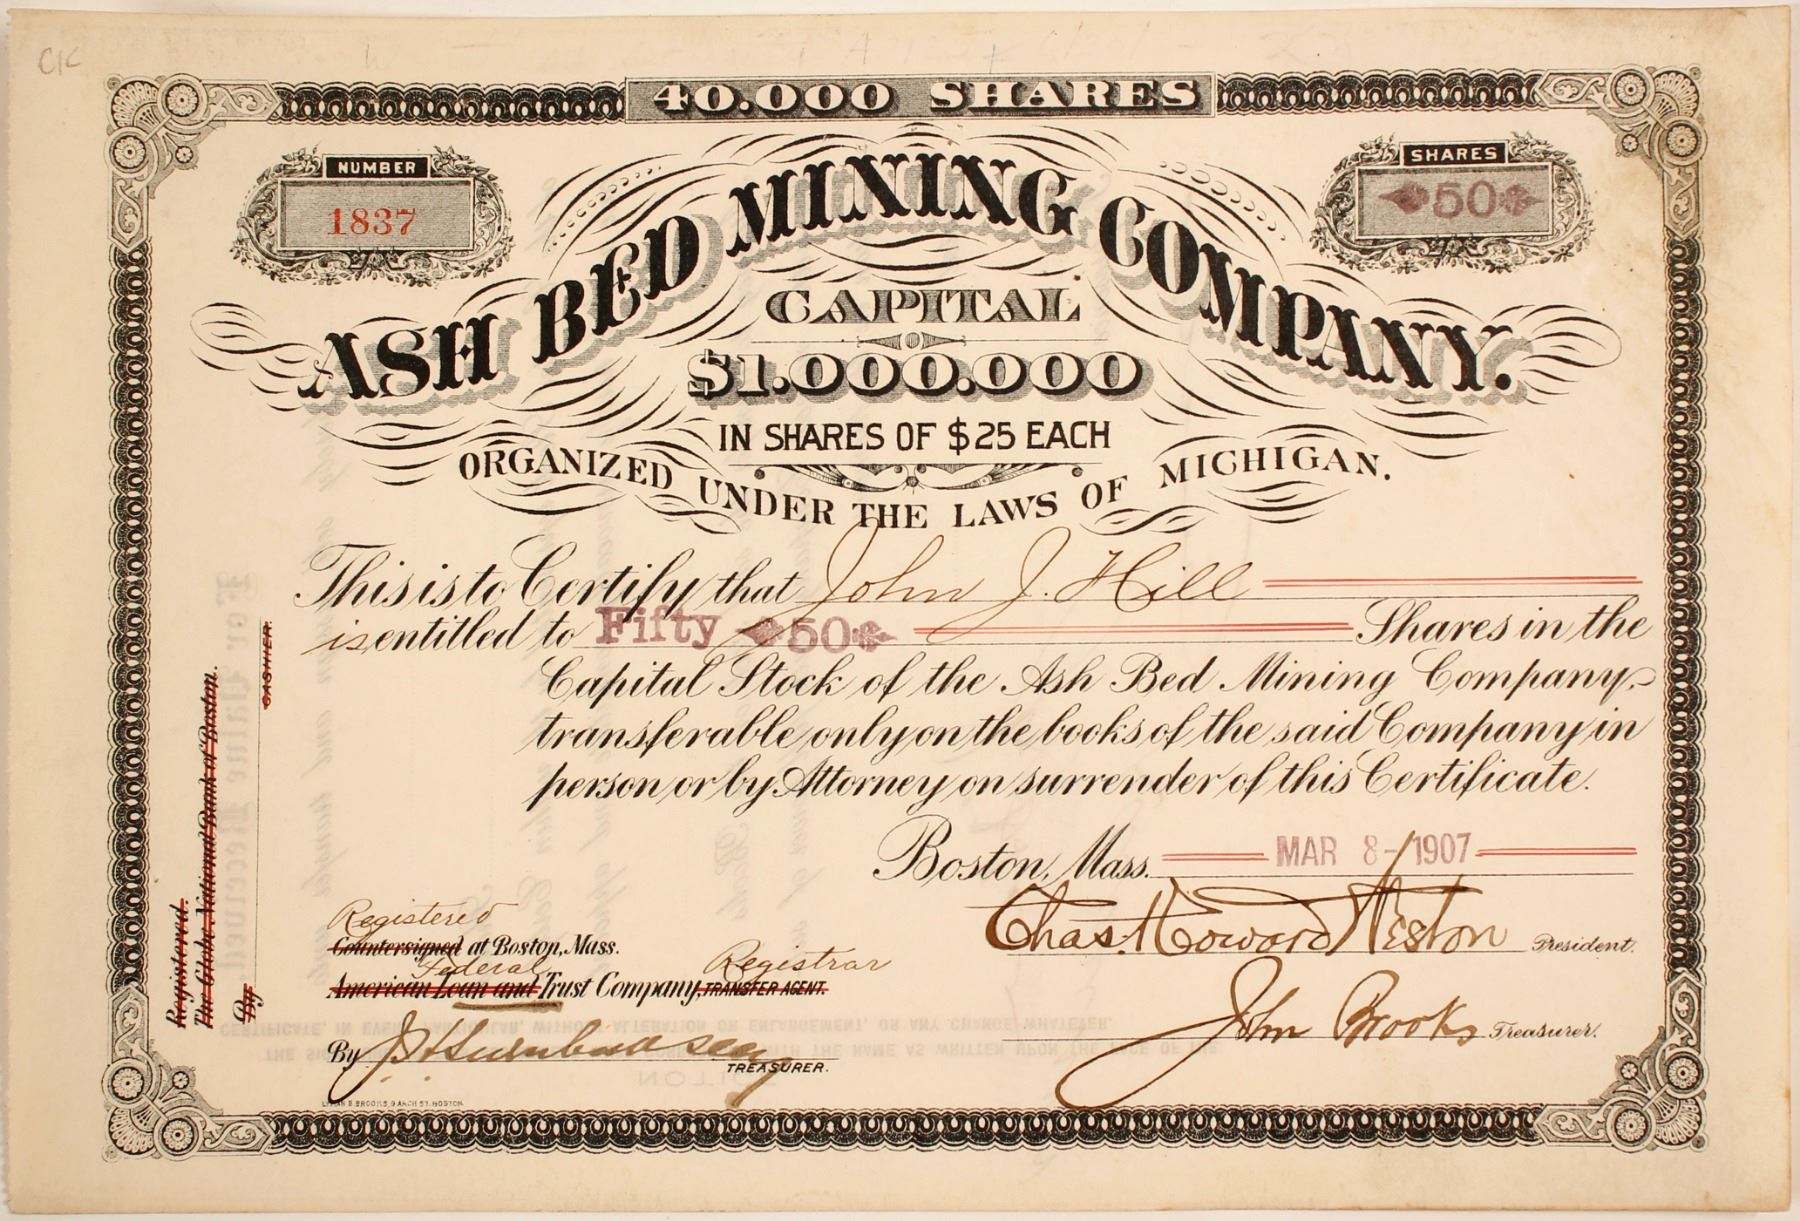 CK
40.000 SHARES
NUMBER
1837
SHARES
50
ASH BED MINING COMPANY.
CAPITAL
$1.000.000
IN SHARES OF $25 EACH
ORGANIZED UNDER THE LAWS OF MICHIGAN.
This is to Certify that John J. Hill
is entitled to Fifty 50 Shares in the
Capital Stock of the Ash Bed Mining Company,
transferable only on the books of the said Company in
person or by Attorney on surrender of this Certificate.
Boston, Mass. MAR 8-1907
Chas. Howard Weston President.
John Brooks Treasurer.
Registered
Countersigned at Boston, Mass.
Federal Registrar
American Loan and Trust Company, TRANSFER AGENT.
By
TREASURER.
LYMAN B. BROOKS, 9 ARCH ST. BOSTON.
Registered.
The Globe National Bank of Boston.
By CASHIER.